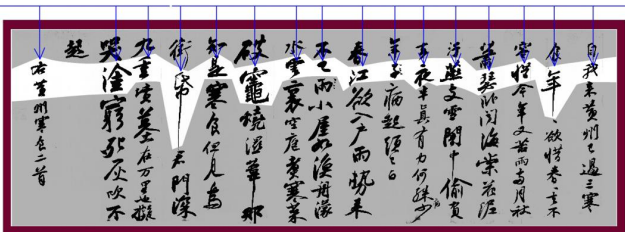 自我來黃州已過三寒
食年〻欲惜春〻去不
容惜今年又苦雨兩月秋
蕭瑟臥聞海棠花泥
汙燕支雪闇中偷負
去夜半真有力何殊少
年子病起頭已白
春江欲入戶雨勢來
不已雨小屋如漁舟濛
水雲裏空庖煮寒菜
破竈燒濕葦那
知是寒食但見烏
銜帋君門深
九重墳墓在萬里也擬
哭塗窮死灰吹不
起
右黃州寒食二首